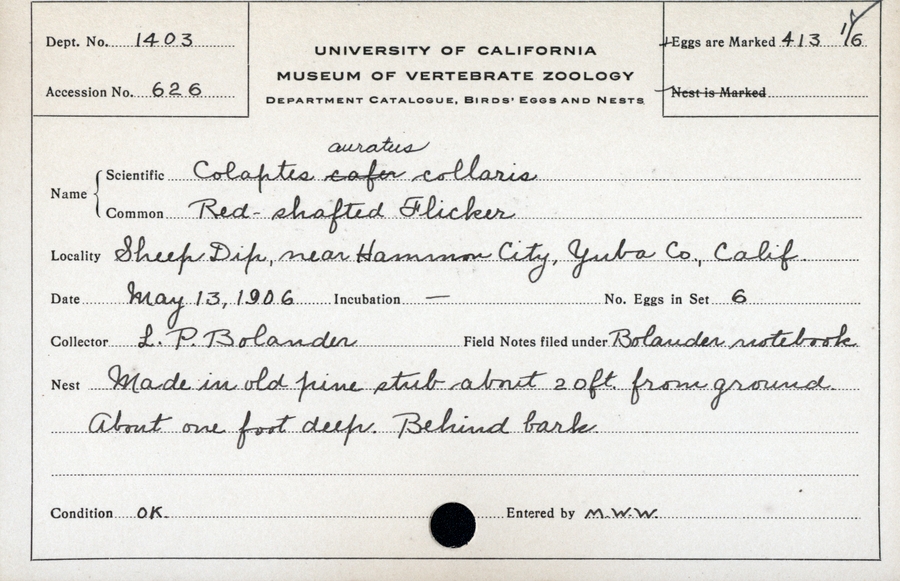 Dept. No. 1403
Accession No. 626
UNIVERSITY OF CALIFORNIA
MUSEUM OF VERTEBRATE ZOOLOGY
DEPARTMENT CATALOGUE, BIRDS' EGGS AND NESTS
Eggs are Marked 413 1/6
Nest is Marked
auratus
Name { Scientific Colaptes cafer collaris
Common Red-shafted Flicker
Locality Sheep Dip, near Hammon City, Yuba Co., Calif.
Date May 13, 1906 Incubation — No. Eggs in Set 6
Collector L. P. Bolander Field Notes filed under Bolander notebook
Nest Made in old pine stub about 20ft. from ground.
About one foot deep. Behind bark.
Condition OK. Entered by M.W.W.